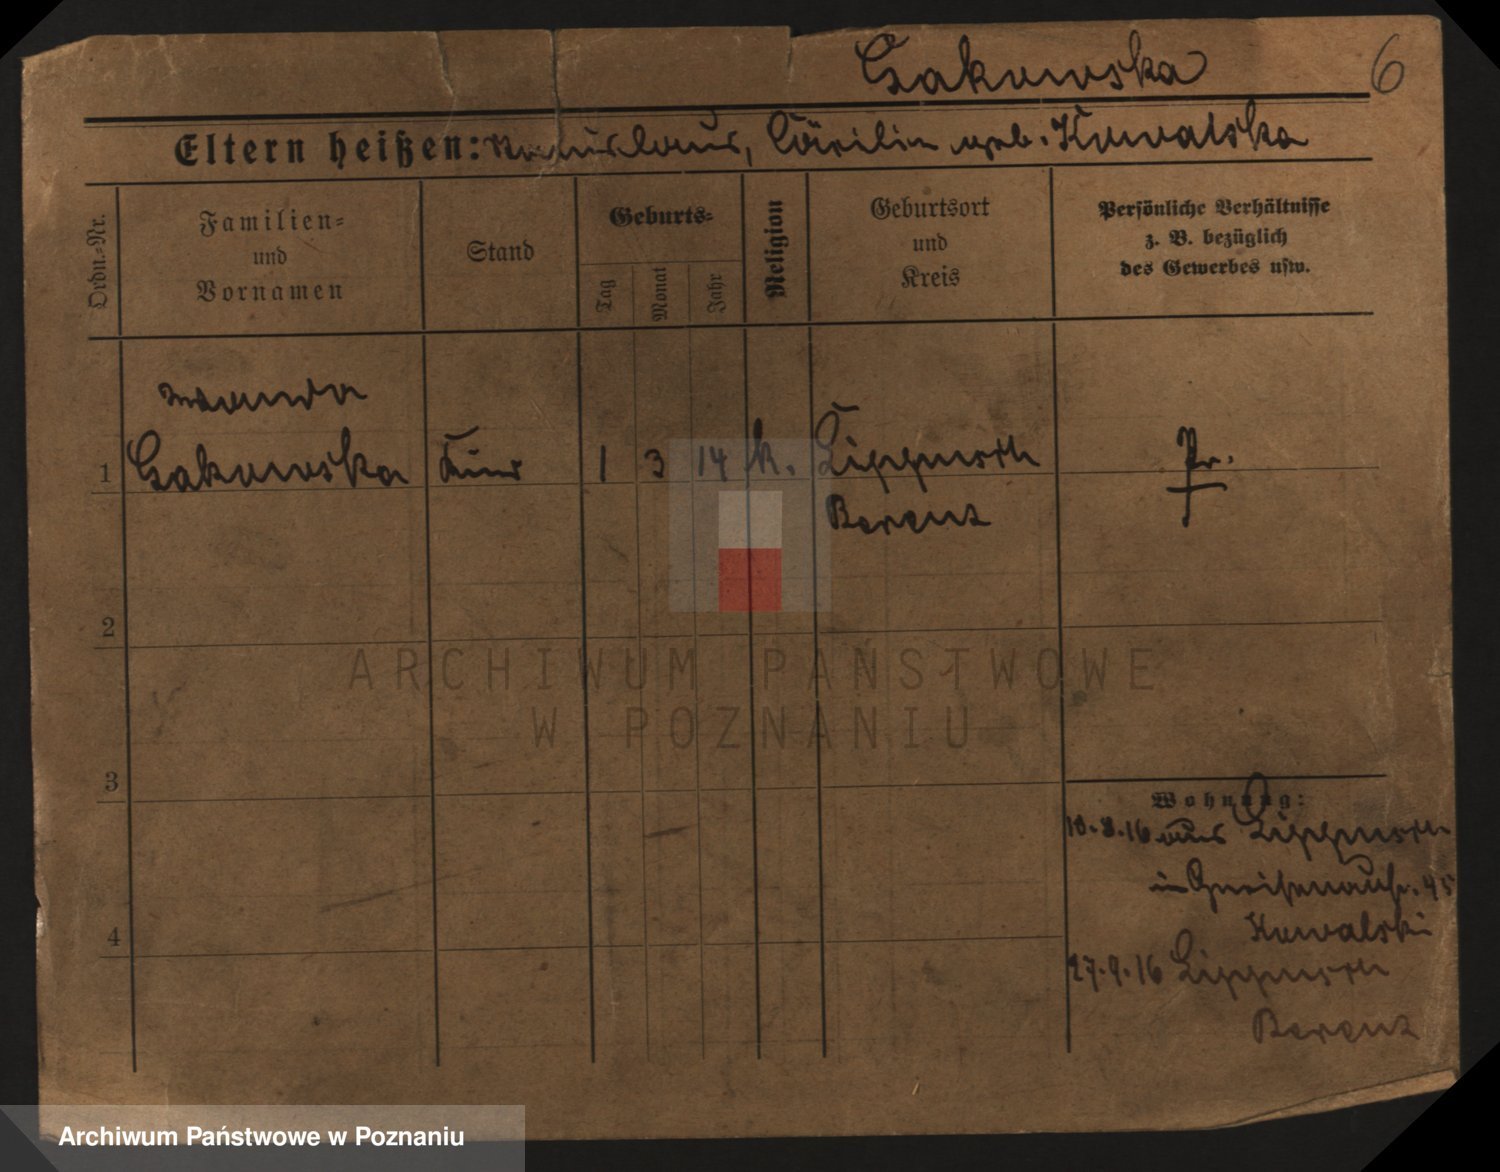 Gakowska 6
Eltern heißen: geb. Kowalska
Ordn.-Nr.
Familien-
und
Vornamen
Stand
Geburts-
Tag
Monat
Jahr
Religion
Geburtsort
und
Kreis
Persönliche Verhältnisse
z. B. bezüglich
des Gewerbes usw.
Wanda
1 Gakowska Kind 1 3 14 k. Lippusch Pr.
Berent
2
3
4
Wohnung:
10.8.16 aus Lippusch
in Gneisenaustr. 45
Kowalski
27.9.16 Lippusch
Berent
ARCHIWUM PAŃSTWOWE
W POZNANIU
Archiwum Państwowe w Poznaniu